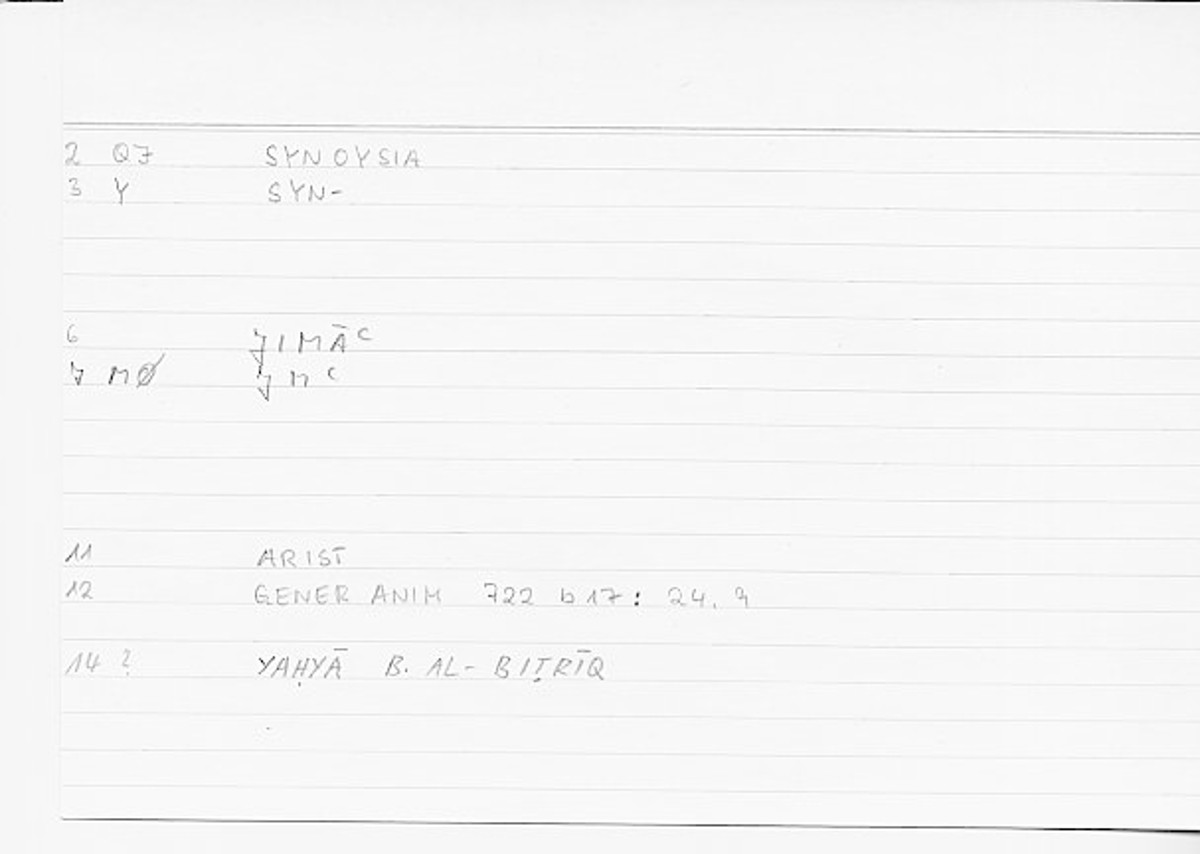 2 QJ SYNOYSIA
3 Y SYN-
6 ǦIMĀʿ
7 MØ ǦMʿ
11 ARIST
12 GENER ANIM 722 b 17 : 24. 9
14 ? YAḤYĀ B. AL-BIṬRĪQ